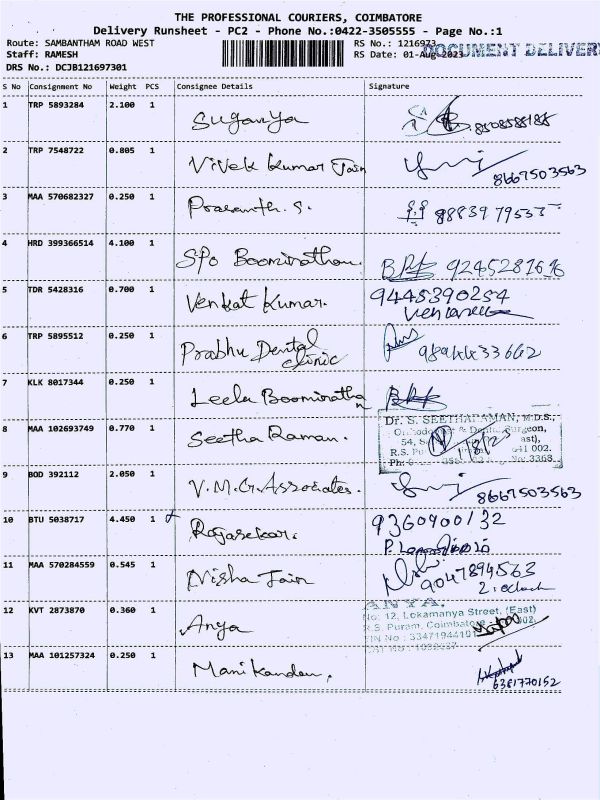 THE PROFESSIONAL COURIERS, COIMBATORE
Delivery Runsheet - PC2 - Phone No.:0422-3505555 - Page No.:1
Route: SAMBANTHAM ROAD WEST RS No.: 1216973
DOCUMENT DELIVER
Staff: RAMESH RS Date: 01-Aug-2023
DRS No.: DCJB121697301
S No Consignment No Weight PCS Consignee Details Signature
1 TRP 5893284 2.100 1 Suganya 8508558188
2 TRP 7548722 0.805 1 Vivek Kumar Jain 8667503563
3 MAA 570682327 0.250 1 Prasanth. S. 88839 79537
4 HRD 399366514 4.100 1 SPo Boominathan. 9245281696
5 TDR 5428316 0.700 1 Venkat Kumar. 9445390254
6 TRP 5895512 0.250 1 Prabhu Dental
clinic 9894433662
7 KLK 8017344 0.250 1 Leela Boominathan
8 MAA 102693749 0.770 1 Seetha Raman.
Dr. S. SEETHARAMAN, M.D.S.,
geon,
54, S ast),
R.S. Pu 641 002.
Ph: No. 3368
9 BOD 392112 2.050 1 V.M.G. Associates. 8667503563
10 BTU 5038717 4.450 1 Rajasekar. 9360900132
11 MAA 570284559 0.545 1 Nisha Jain 9047894563
2'oclock
12 KVT 2873870 0.360 1 Anya
ANYA.
No: 12, Lokamanya Street, (East)
R.S. Puram, Coimbatore 002.
TIN No : 33471944191
13 MAA 101257324 0.250 1 Manikandan. 6381770152